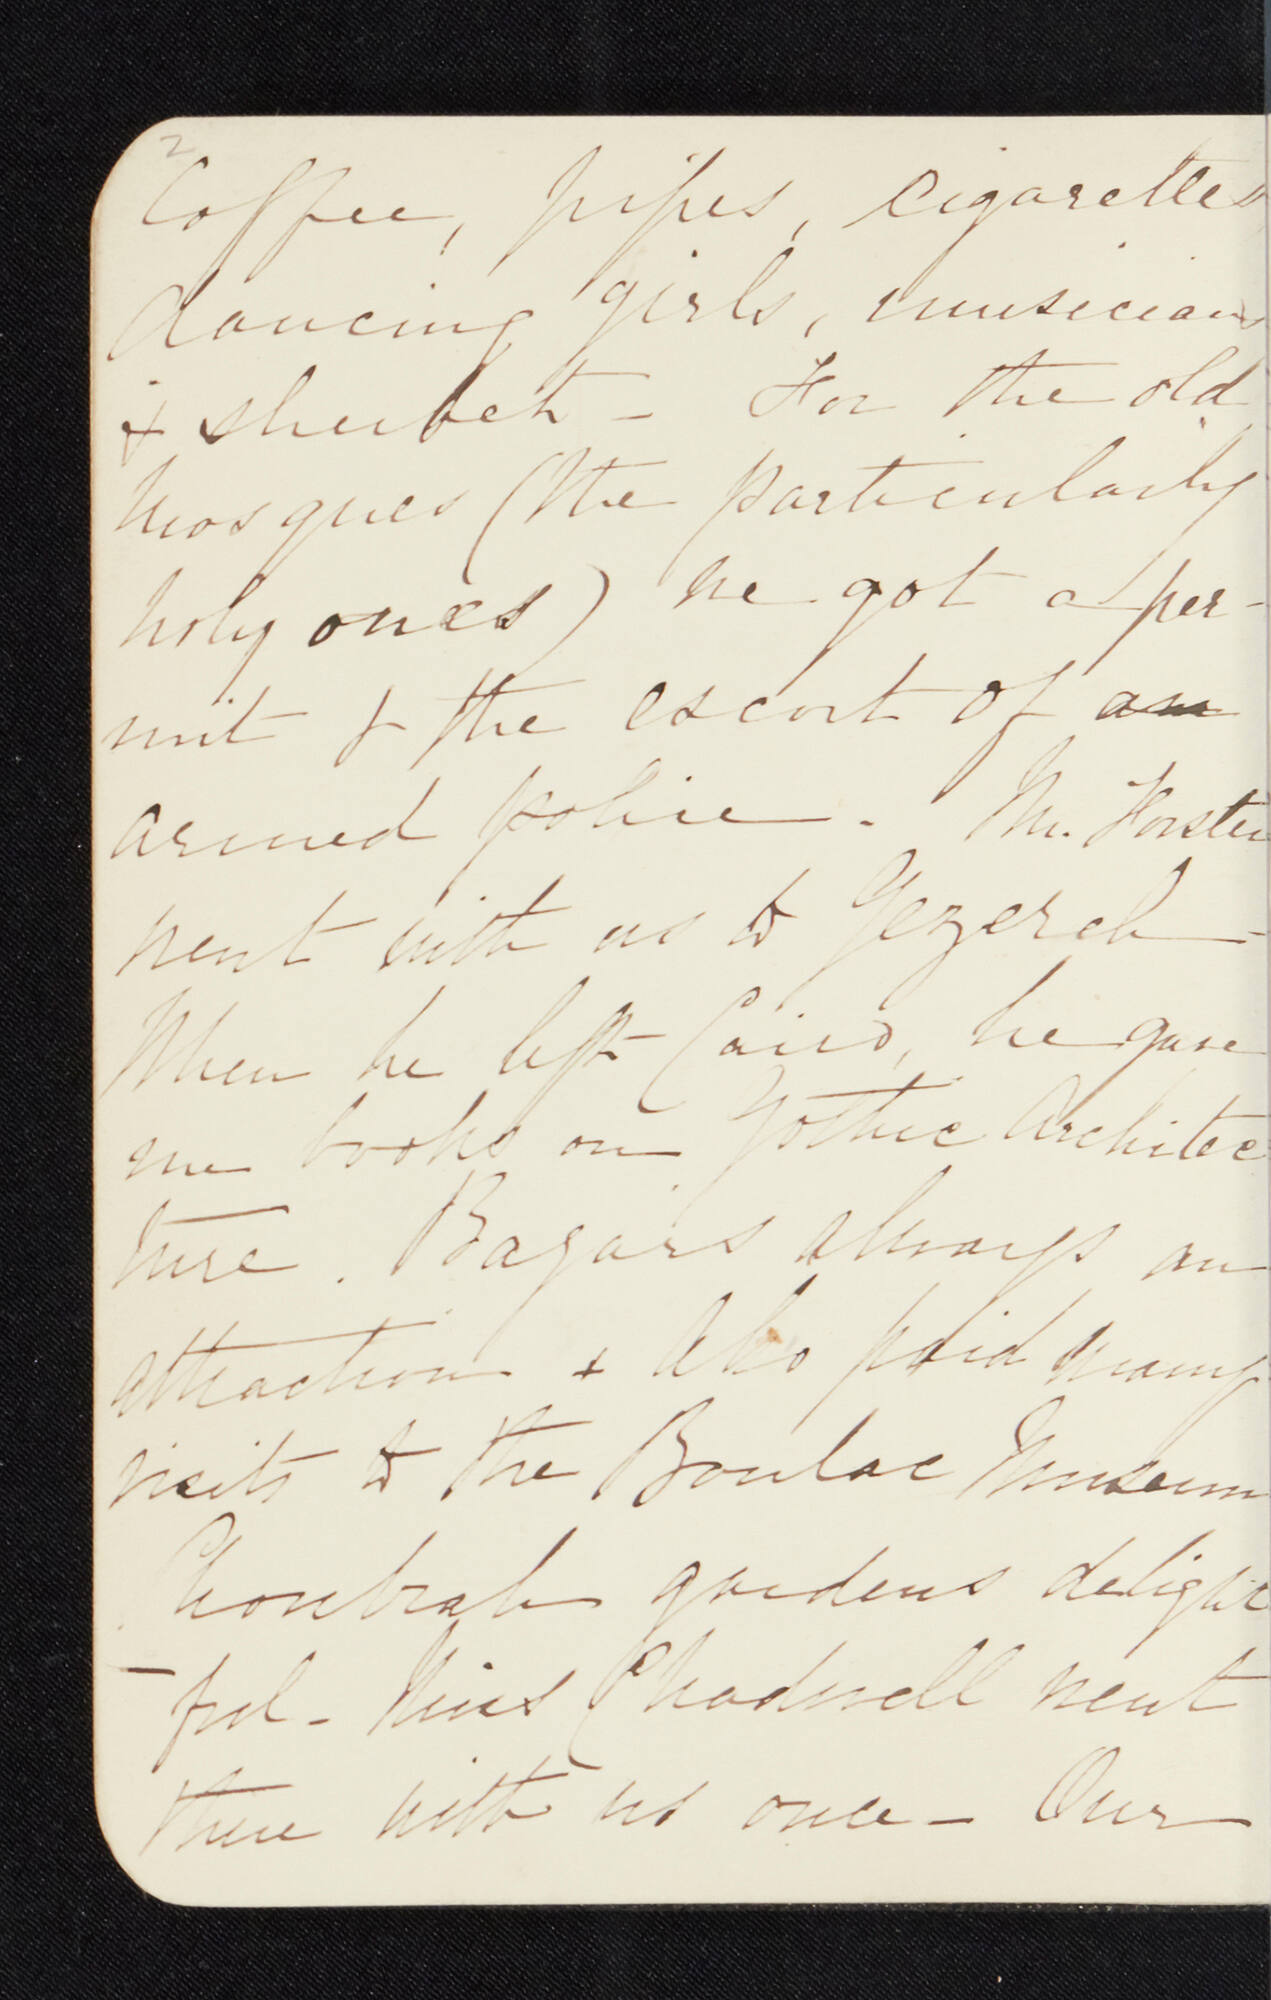 2
Coffee, pipes, cigarettes,
dancing girls, musicians
& sherbet - For the old
mosques (the particularly
holy ones) we got a per-
mit & the escort of am
armed police. Mr. Forster
went with us to Gezereh -
When he left Cairo, he gave
me books on Gothic Architec
ture. Bazars always an
attraction & also paid many
visits to the Boulac Museum
Choubrah gardens delight
-ful - Miss Chadwell went
there with us once - Our